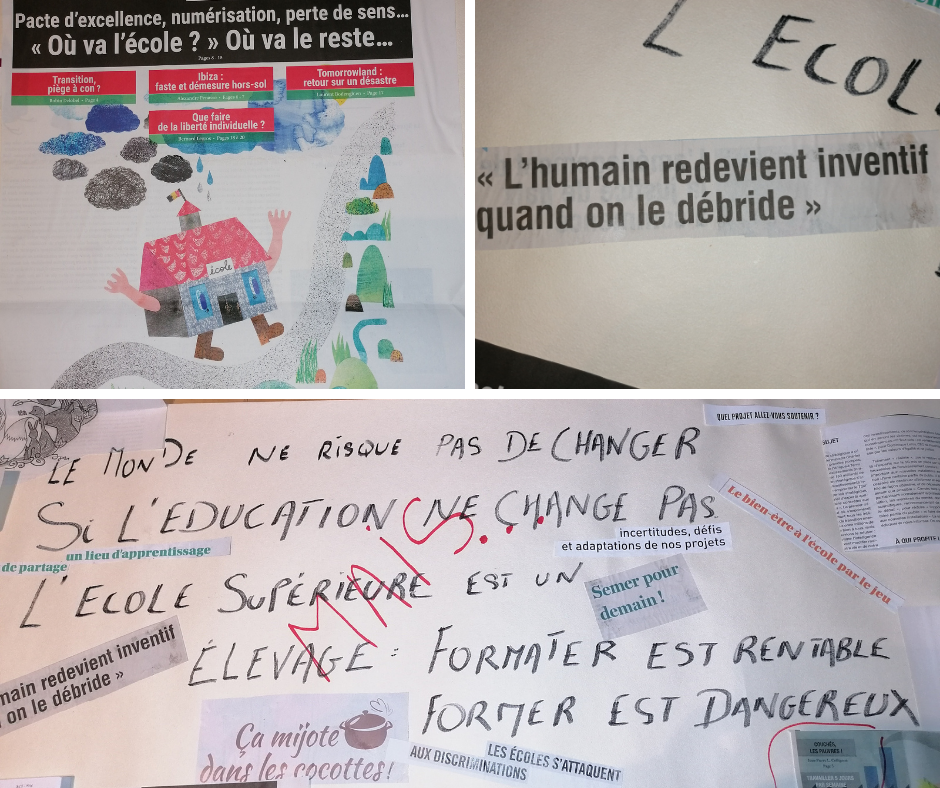 Pacte d'excellence, numérisation, perte de sens...
« Où va l'école ? » Où va le reste...
Pages 8 - 19
Transition,
piège à con ?
Ibiza :
faste et démesure hors-sol
Tomorrowland :
retour sur un désastre
Que faire
de la liberté individuelle ?
école
L'ECOL
« L'humain redevient inventif
quand on le débride »
QUEL PROJET ALLEZ-VOUS SOUTENIR ?
LE MONDE NE RISQUE PAS DE CHANGER
SI L'EDUCATION NE CHANGE PAS
MAIS...
Le bien-être à l'école par le jeu
incertitudes, défis
et adaptations de nos projets
un lieu d'apprentissage
de partage
L'ECOLE SUPÉRIEURE EST UN
Semer pour
demain !
ÉLEVAGE : FORMATER EST RENTABLE
FORMER EST DANGEREUX
main redevient inventif
on le débride »
Ça mijote
dans les cocottes !
LES ÉCOLES S'ATTAQUENT
AUX DISCRIMINATIONS
À QUI PROFITE
COUCHÉS,
LES PAUVRES !